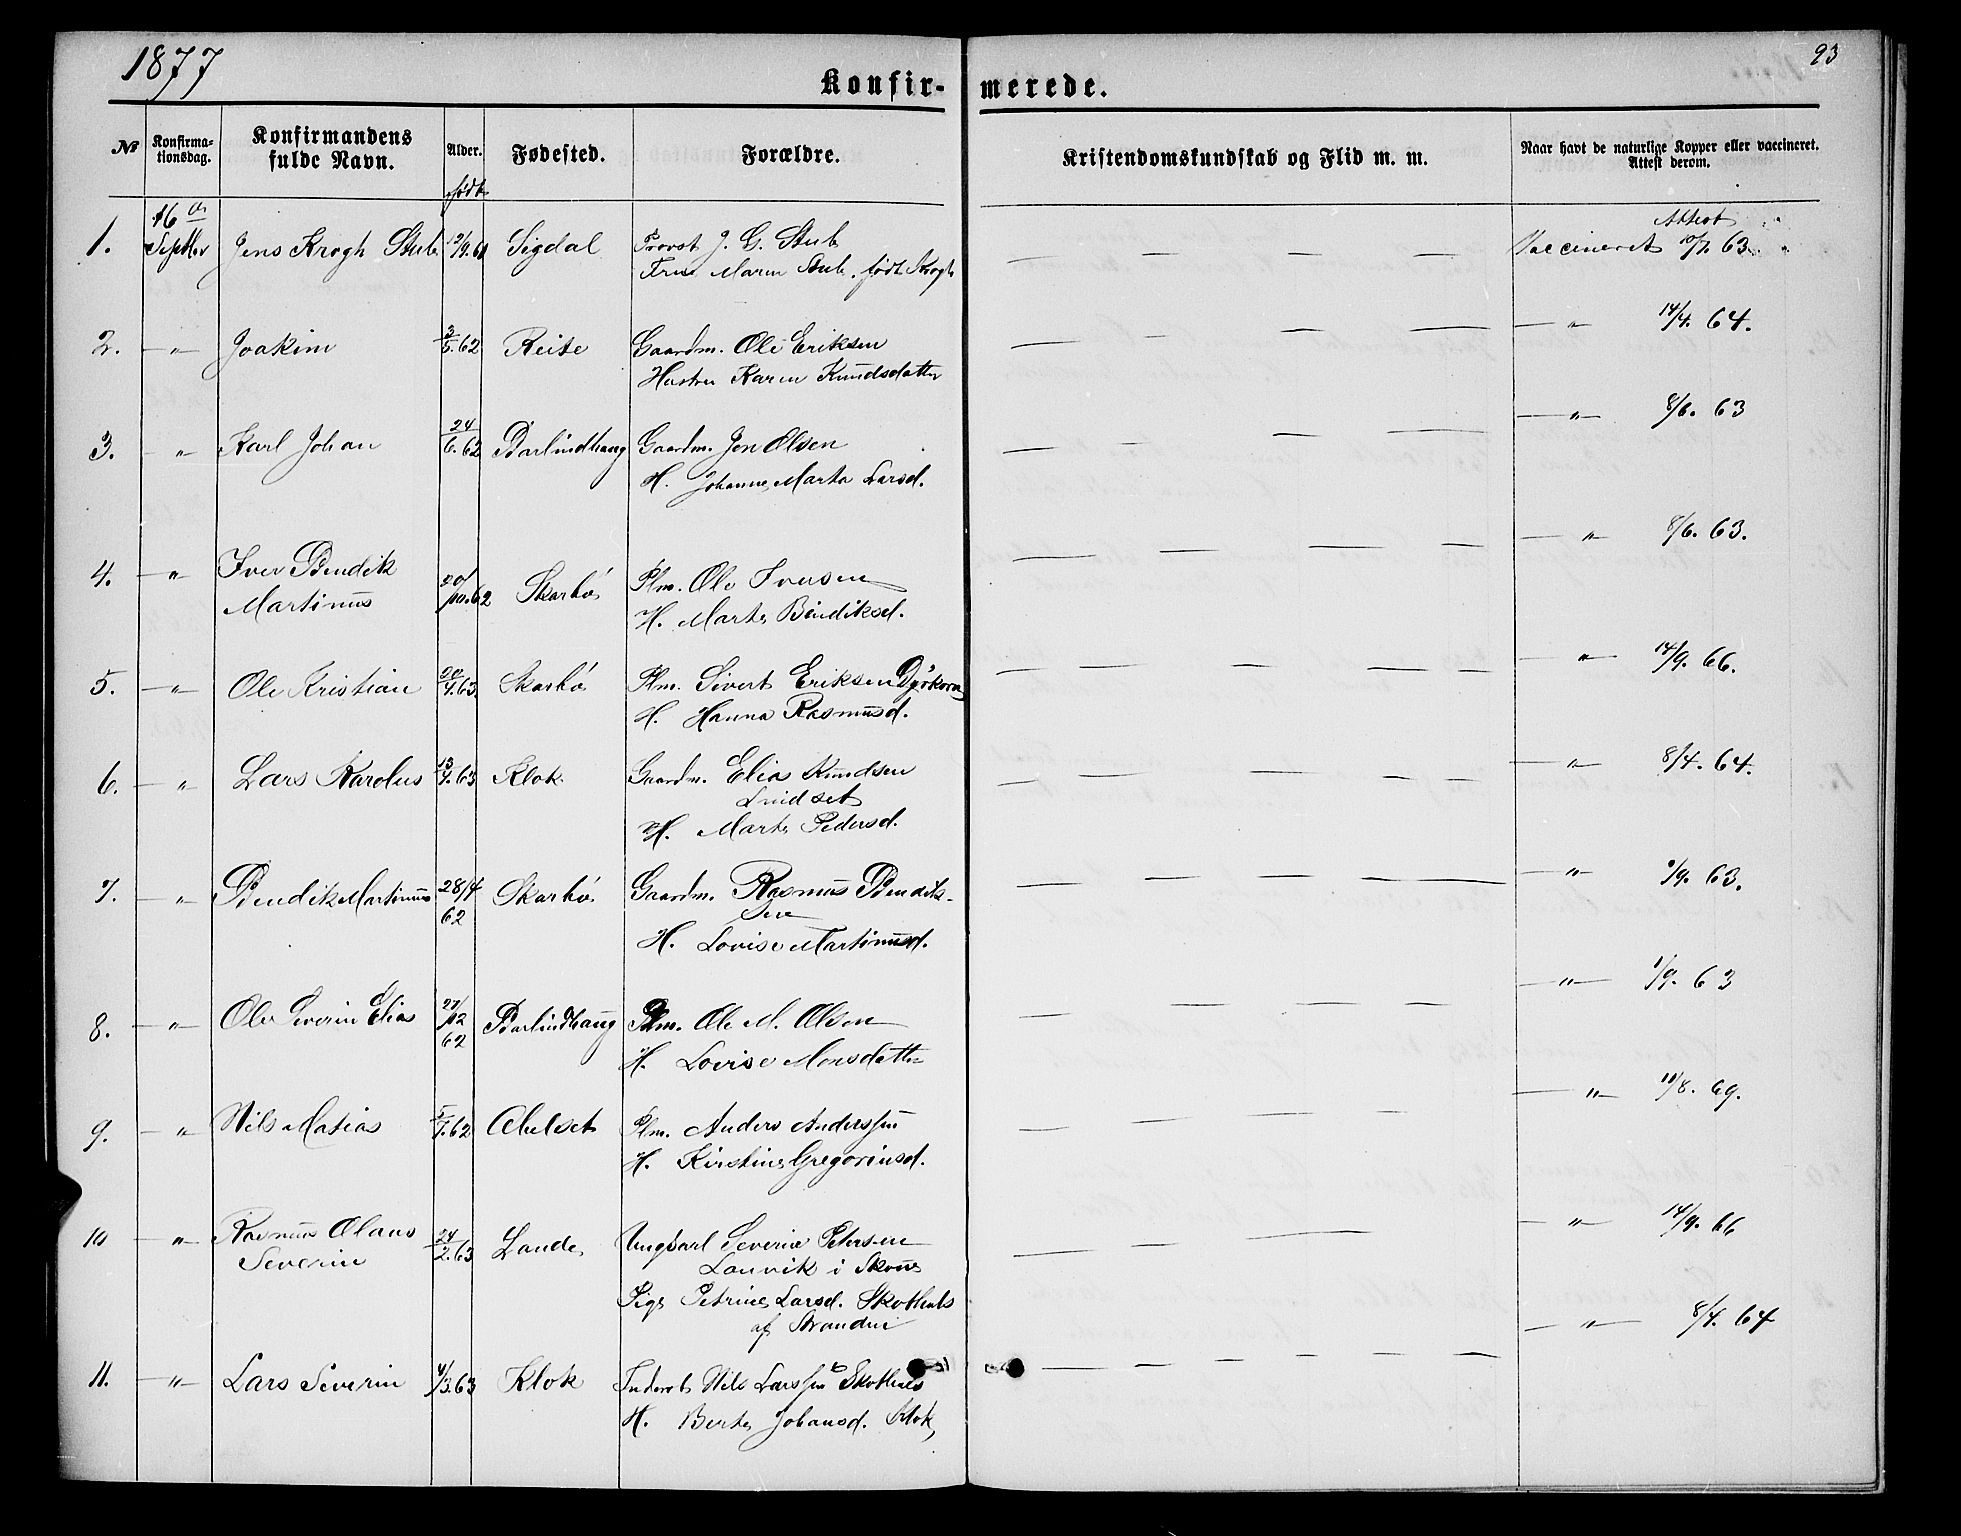 1877
93
Konfir-merede.
№ Konfirma-tionsdag. Konfirmandens fulde Navn. Alder. Fødested. Forældre. Kristendomskundskab og Flid m. m. Naar havt de naturlige Kopper eller vaccineret. Attest derom.
født
16 Attest
1. Septbr Jens Krogh Stub 61 Sigdal Provst J. G. Stub Vaccineret 63
Frue Maren Stub, født Krogh
2. — " Joakim 62 Reite Gaardm. Ole Eriksen — " 14/4. 64.
Hustru Karen Knudsdatter
3. — " Karl Johan 24/6. 62 Barlindhaug Gaardm. Jon Olsen — " — 8/6. 63
H. Johanne Marta Larsd.
4. — " Iver Bendik Martinus 20/10. 62 Skarbø Plm. Ole Iversen — " — 8/6. 63.
H. Marte Bendiksd.
5. — " Ole Kristian 63 Skarbø Plm. Sivert Eriksen Dyrkorn — " — 14/9. 66.
H. Hanna Rasmusd.
6. — " Lars Karolus 13/4. 63 Klok Gaardm. Elias Knudsen — " — 8/4. 64.
Lindset
H. Marte Pedersd.
7. — " Bendik Martinus 28/4 62 Skarbø Gaardm. Rasmus Bendik-sen — " — 1/9. 63.
H. Lovise Martinusd.
8. — " Ole Severin Elias 27/12 62 Barlindhaug Plm. Ole M. Olsen — " — 1/9. 63
H. Lovise Monsdatter
9. — " Nils Matias 62 Abelset Plm. Anders Anderssen — " — 11/8. 69.
H. Kirstine Gregoriusd.
10 — " Rasmus Olaus Severin 24/2. 63 Lande Ungkarl Severin Petersen — " — 14/9. 66
Lauvik i Skous
Pige Petrine Larsd. Skothals
af Stranden
11. — " Lars Severin 4/3. 63 Klok Inderst Nils Larssen Skothals — " — 8/4. 64
H. Berte Johansd. Klok